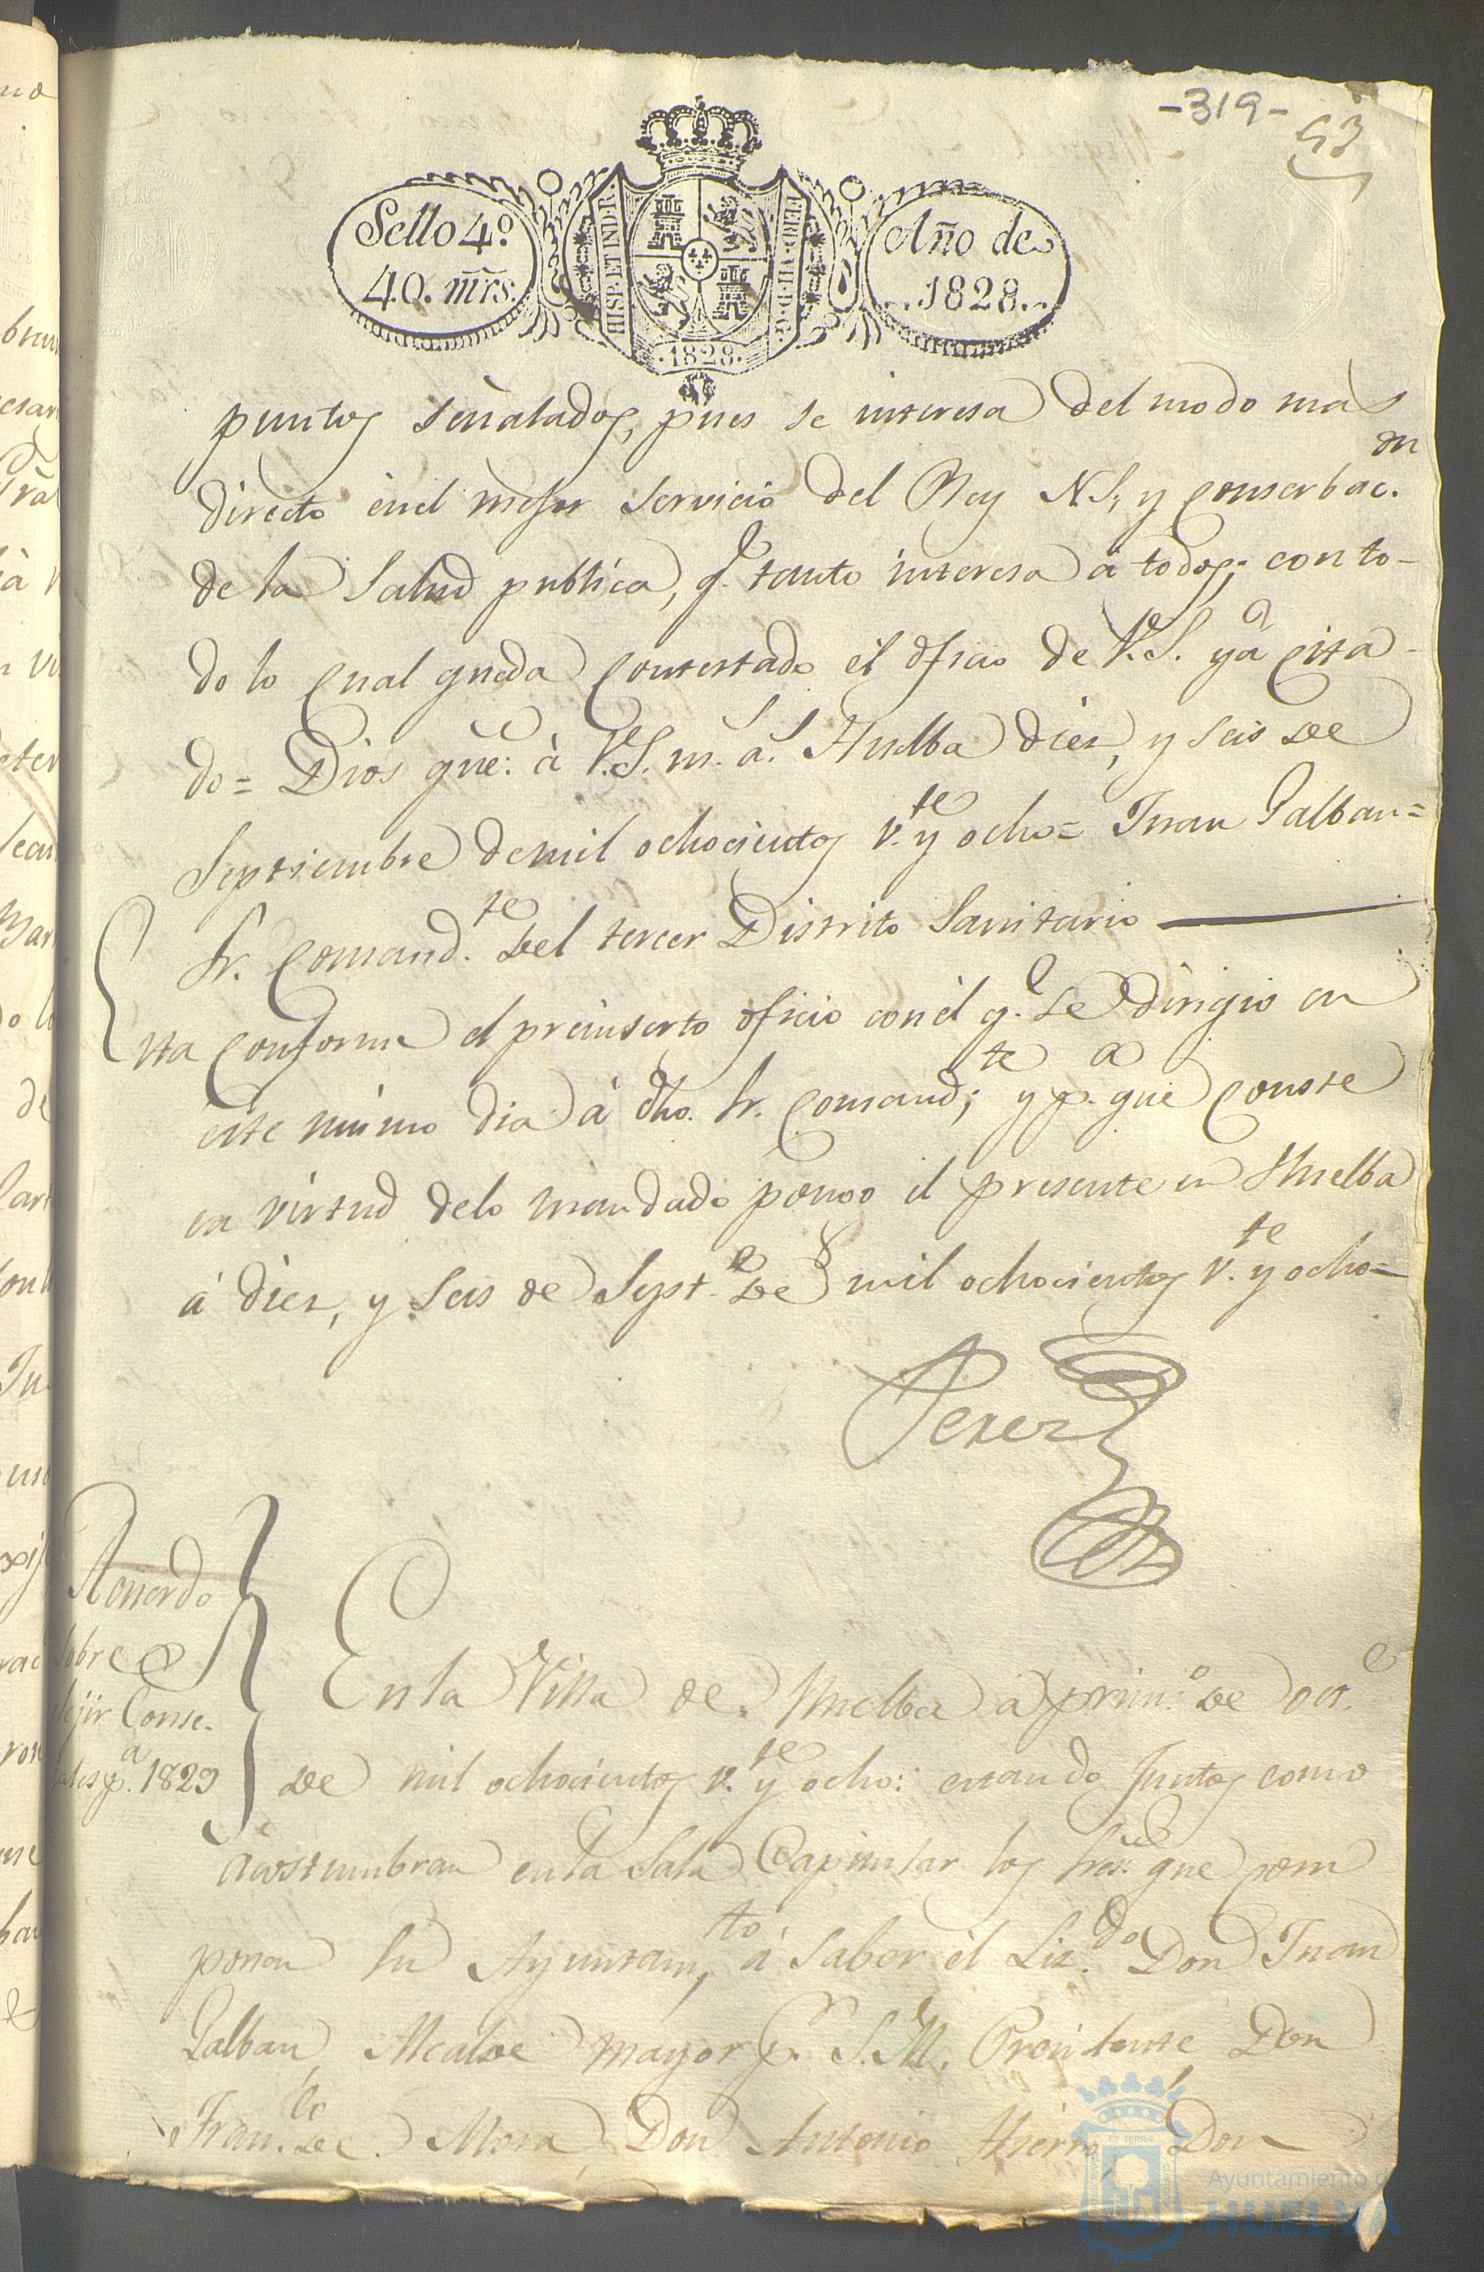 -319-
53
Sello 4.º
40. mrs.
HISP. ET IND. R.
FERD. VII. D. G.
.1828.
Año de
.1828.
puntos señalados, pues se interesa del modo mas
directo en el mejor servicio del Rey N S, y conserbac.on
de la Salud publica, q.e tanto interesa á todos; con to-
do lo cual queda contestado el oficio de V.S. ya cita-
do= Dios gue: à V.S. m. a.s Huelba diez, y seis de
Septiembre de mil ochocientos v.te y ocho= Juan Galban=
Sr. Comand.te del tercer Distrito Sanitario
Esta conforme el preinserto oficio con el q.e se dirigio en
este mismo dia à dho. Sr. Comand.te; y p.a que conste
en virtud delo mandado pongo el presente en Huelba
á diez, y seis de Sept.e de mil ochocientos v.te y ocho=
Perez
Acuerdo
sobre
elejir Conse-
jales p.a 1829
En la Villa de Huelba à prim.o de oct.e
de mil ochocientos v.te y ocho: estando Juntos como
àcostumbran en la Sala Capitular los Sres. que com
ponen su Ayuntam.to, á saber el Liz.do Don Juan
Galban Alcalde mayor p.r S.M. Presidente, Don
Fran.co de Mora, Don Antonio Hierro, Don
Ayuntamiento de
HUELVA